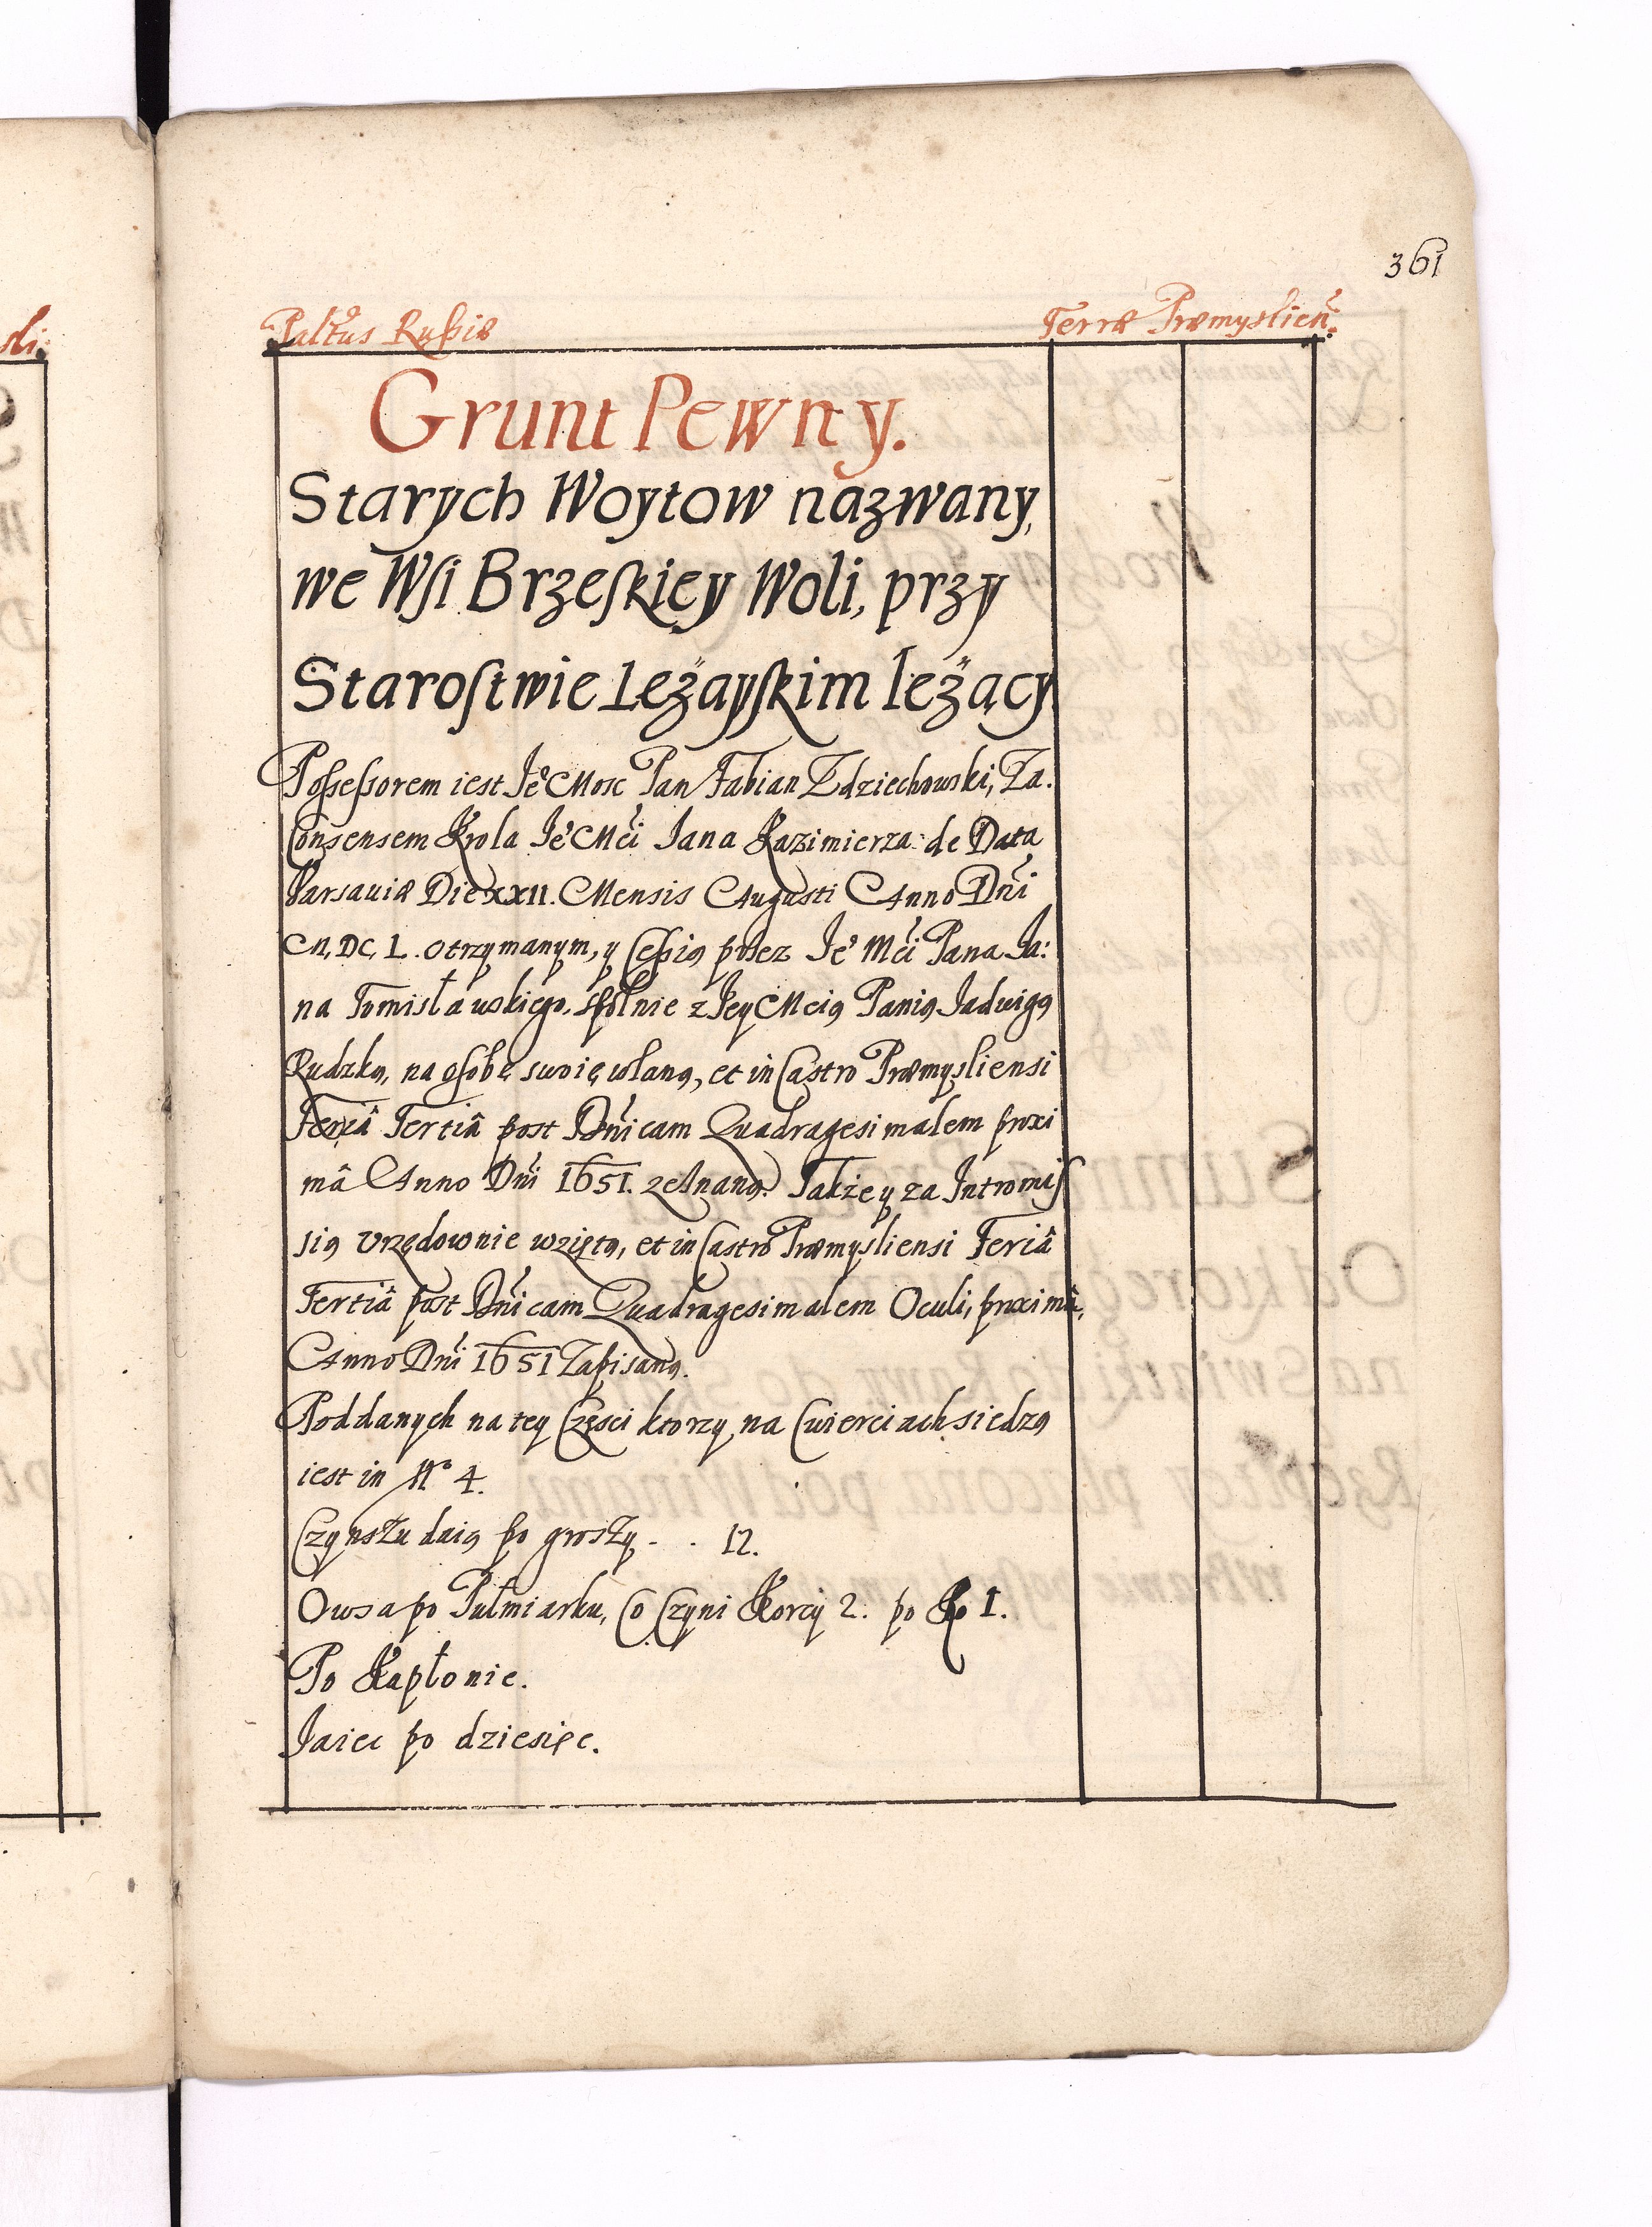 361
Palt͠us Rußiæ Terræ Præmyslien͠.
Grunt Pewny.
Starych Woytow nazwany,
we Wsi Brzeskiey Woli, przy
Starostwie Leżayskim leżący.
Possessorem iest Je͠o Mosc Pan Fabian Zdziechowski, Za.
Consensem Krola Je͠o Mci Jana Kazimierza: de Data
Varsaviæ Die XXII. Mensis Augusti Anno Dni
M, DC, L. otrzymanym, y Cessią przez Je͠o Mci Pana Ja:
na Tomisławskiego, społnie z Jey Mcią Panią Jadwigą
Rudzką, na osobę swoię wlaną, et in Castro Præmysliensi
Feriâ Tertiâ post Dnicam Quadragesimalem proxi
mâ Anno Dni 1651. zeznaną. Także y za Intromis
sią Vrzędownie wziętą, et in Castro Præmysliensi Feriâ
Tertiâ post Dnicam Quadragesimalem Oculi, proximâ,
Anno Dni 1651 Zapisaną.
Poddanych na tey Częsci ktorzy na Cwierciach siedzą
iest in No 4.
Czynszu daią po groszy - . 12.
Owsa po Pułmiarku, Co Czyni Korcy 2. po Ko 1.
Po Kapłonie.
Jaiec po dziesięc.